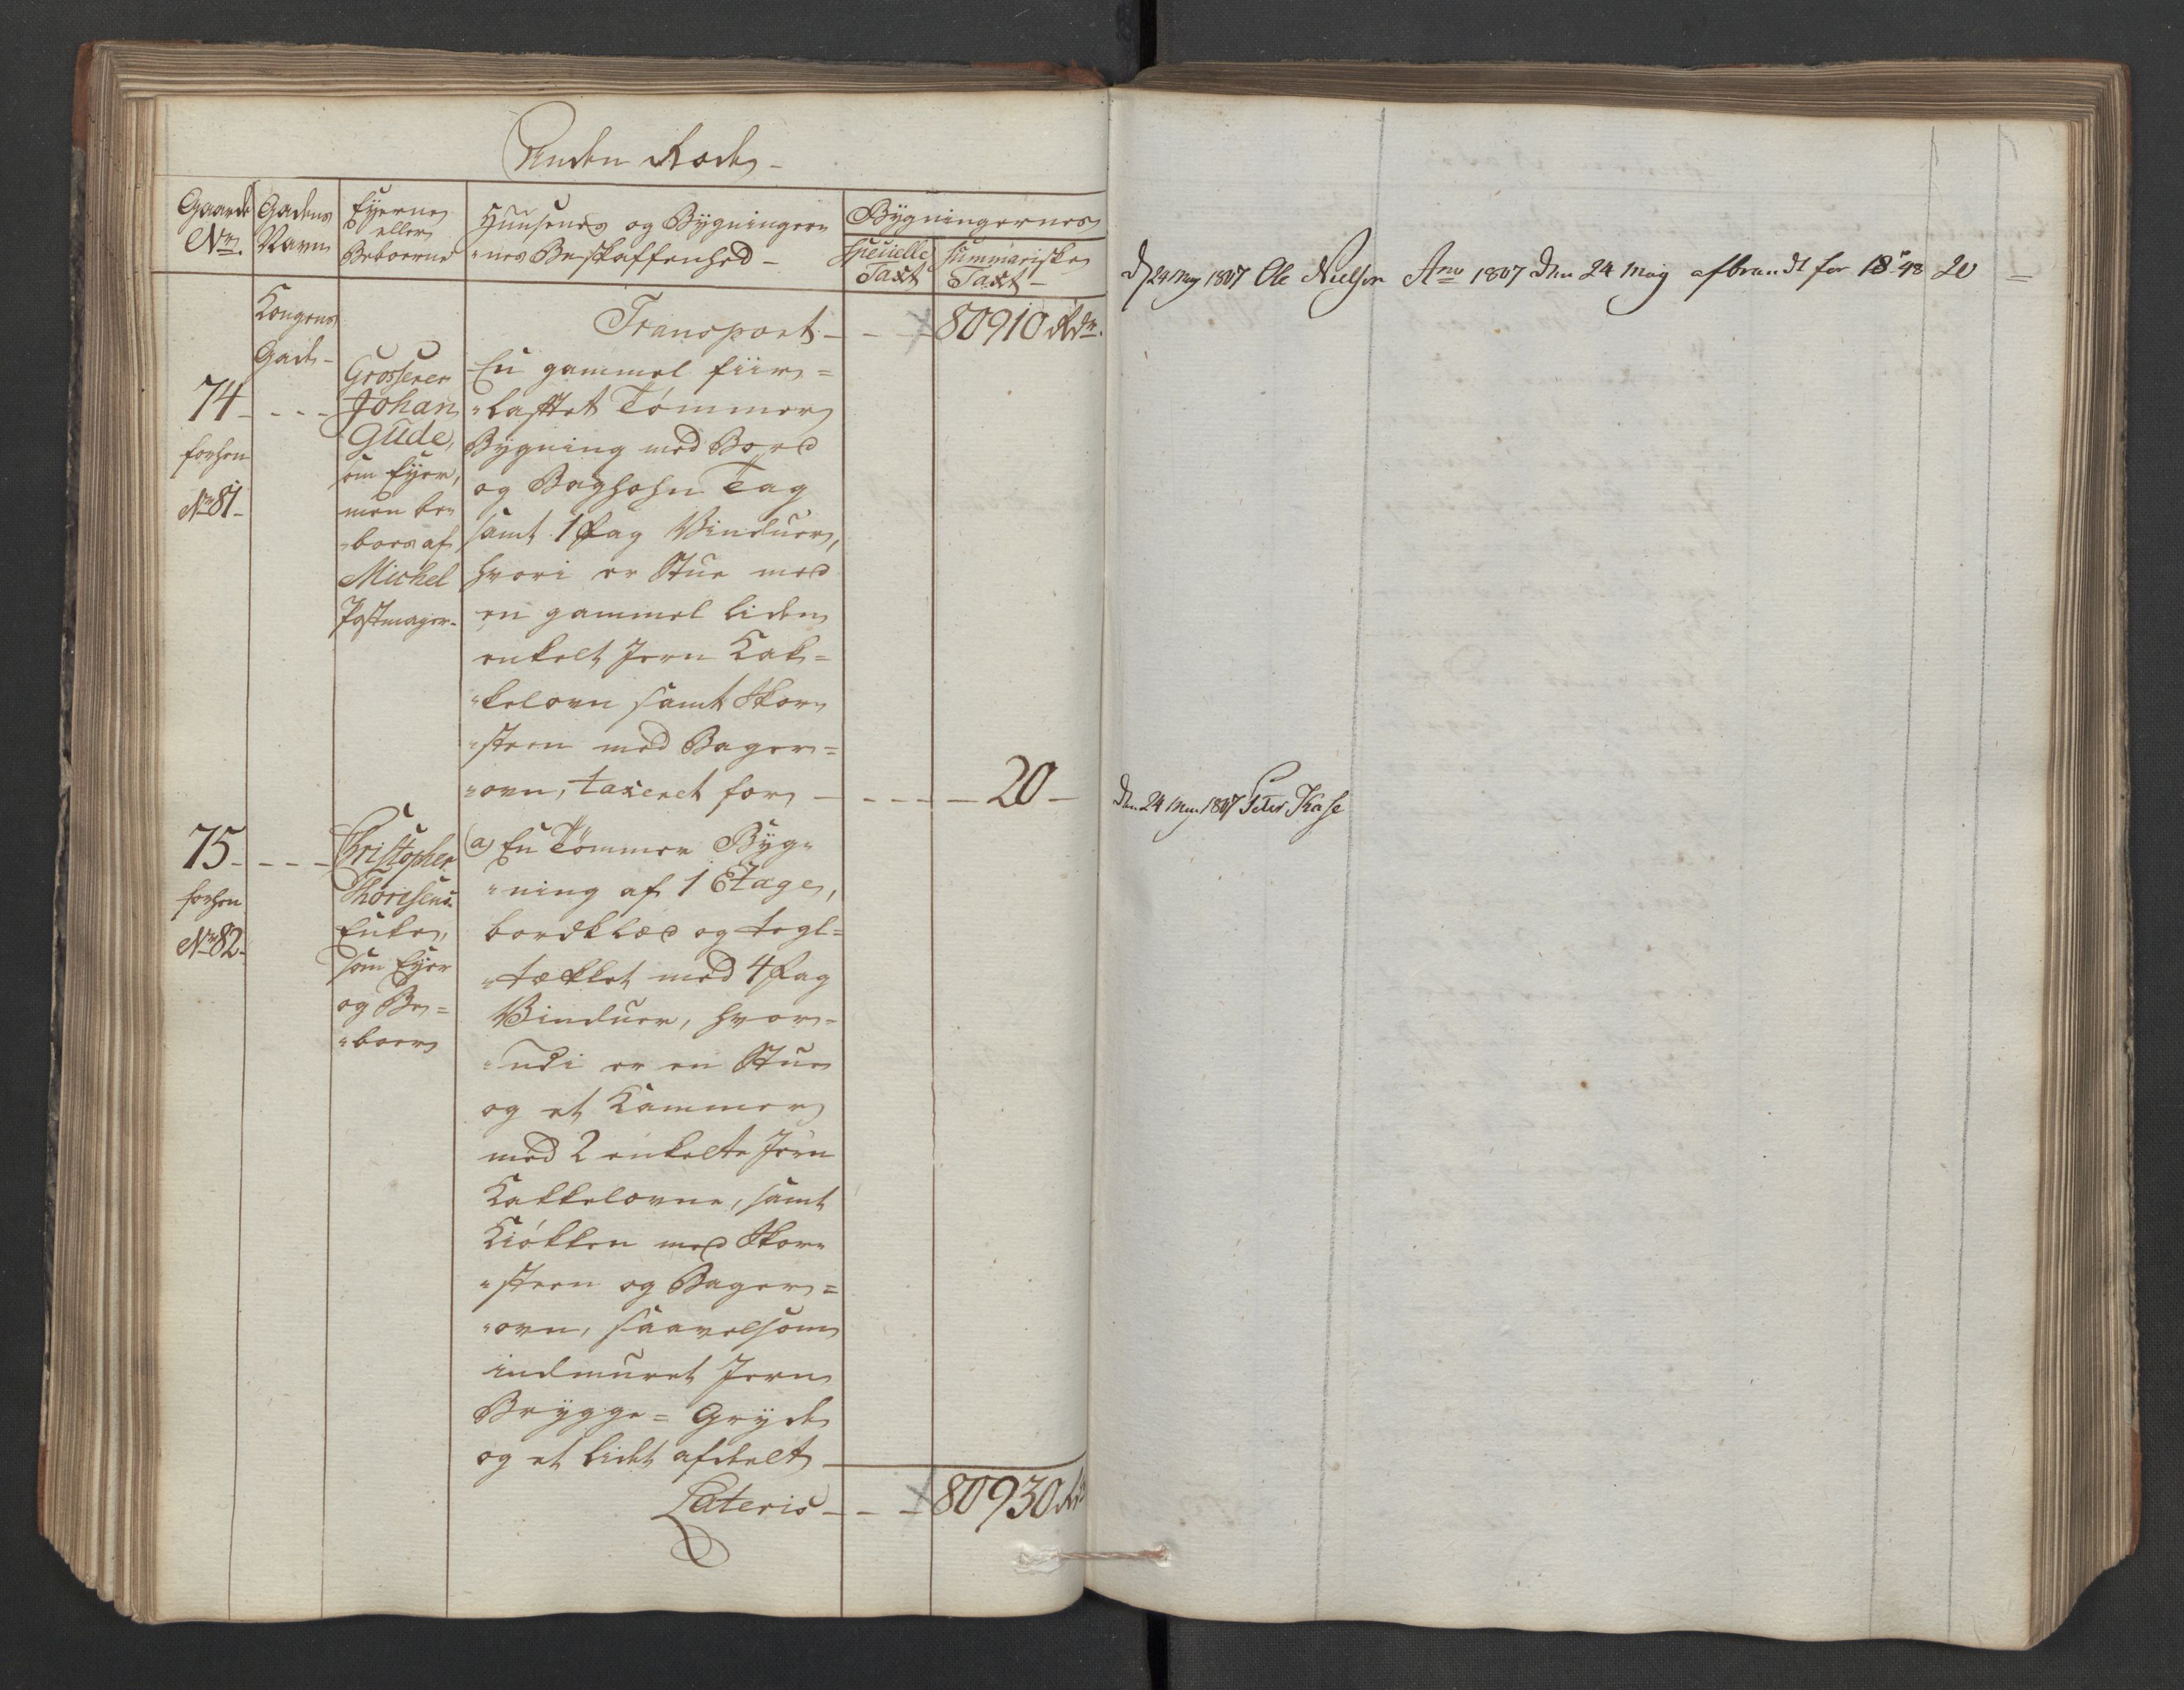 Anden Rode
Gaarde
Nr.
Gadens
Navn
Eyerne
eller
Beboerne
Huusenes og Bygninger-
nes Beskaffenhed -
Bygningernes
Specielle
Taxt
Summariske
Taxt -
Kongens
Gade -
Transport - - - 80910 Rdr.
74 - - - -
forhen
Nr 81 -
Grosserer
Johan
Gude,
som Eyer,
men be-
"boes af
Michel
Postmager -
En gammel fiir=
"laftet Tømmer
Bygning med Bord
og Baghohn Tag
samt 1 Fag Vinduer,
hvori er Stue med
en gammel liden
enkelt Jern Kak=
"kelovn samt Skor-
"steen med Bager=
"ovn, taxeret for - - - - - 20 -
75 - - - -
forhen
Nr 82 -
Christopher
Thoresens
Enke,
som Eyer
og Be=
"boer
(a) En Tømmer Byg-
"ning af 1 Etage,
bordklæd og tegl=
"tækket med 4 Fag
Vinduer, hvor-
"udi er en Stue
og et Kammer
med 2 enkelte Jern
Kakkelovne, samt
Kiøkken med Skor-
"steen og Bager=
"ovn, saavelsom
indmuret Jern
Brygge= Gryde
og et lidet afdeelt
Lateris - - - 80930 Rdr
d 24 May 1807 Ole Nielsen Ano 1807 den 24 May afbrandt for 18 r 48 20 =
den 24 May 1807 Peter Kase